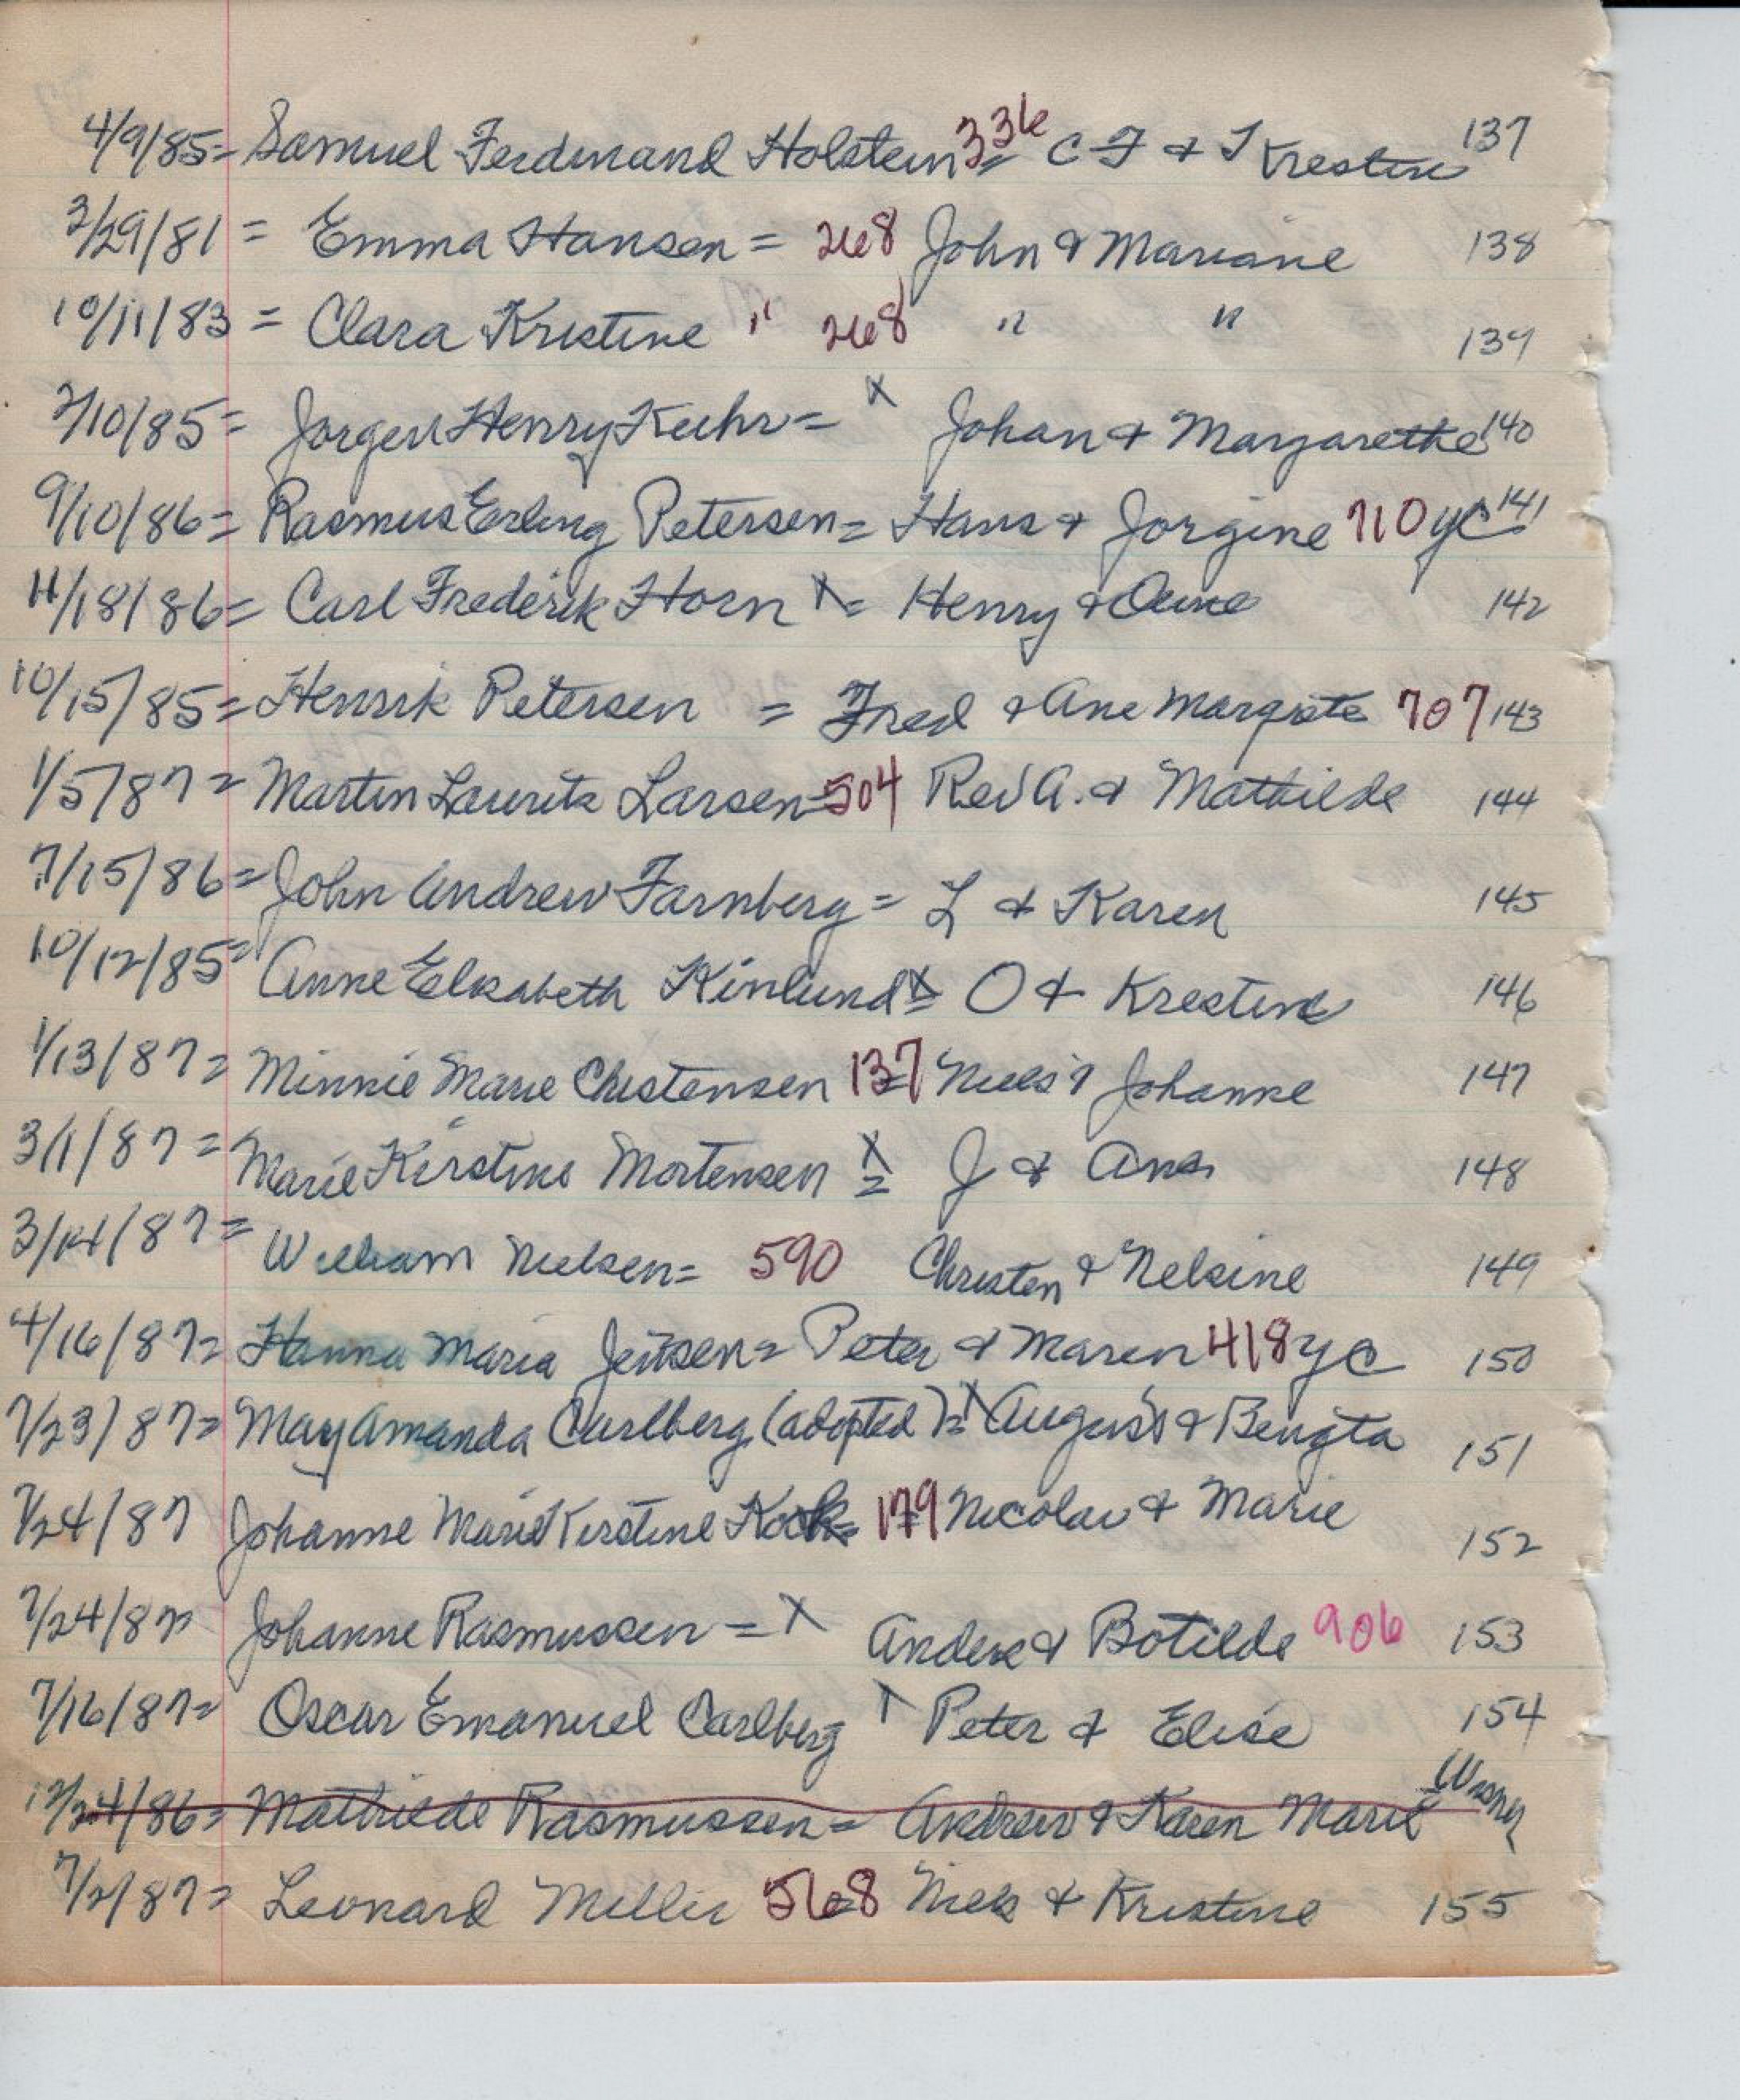 4/9/85= Samuel Ferdinand Holstein= 336 C F & T Krestine 137
3/29/81 = Emma Hansen = 268 John & Mariane 138
10/11/83 = Clara Kristine " 268 " " 139
2/10/85= Jorgen Henry Kuhr= X Johan & Margarethe 140
9/10/86= Rasmus Erling Petersen= Hans & Jorgine 710 yc 141
11/18/86= Carl Frederik Horn X= Henry & 142
10/15/85= Henrik Petersen = Fred & Ane Margrete 707 143
1/5/87= Martin Lauritz Larsen=504 Rev A. & Mathilde 144
7/15/86= John Andrew Farnberg= L & Karen 145
10/12/85= Anne Elisabeth Kinlund X= O & Krestine 146
1/13/87= Minnie Marie Christensen 137= Niels & Johanne 147
3/1/87= Marie Kirstine Mortensen X= J & Ane 148
3/14/87= William Nielsen= 590 Christen & Nelsine 149
4/16/87= Hanna Maria Jensen= Peter & Maren 418 yc 150
7/23/87= May Amanda Carlberg (adopted)= X August & Bengta 151
7/24/87 Johanne Marie Kirstine Kock= 179 Nicolai & Marie 152
7/24/87 Johanne Rasmussen = X Anders & Botilde 906 153
7/16/87= Oscar Emanuel Carlberg X Peter & Elise 154
12/24/86= Mathilde Rasmussen= Andrew & Karen Marie
7/2/87= Leonard Miller 568 Niels & Kristine 155